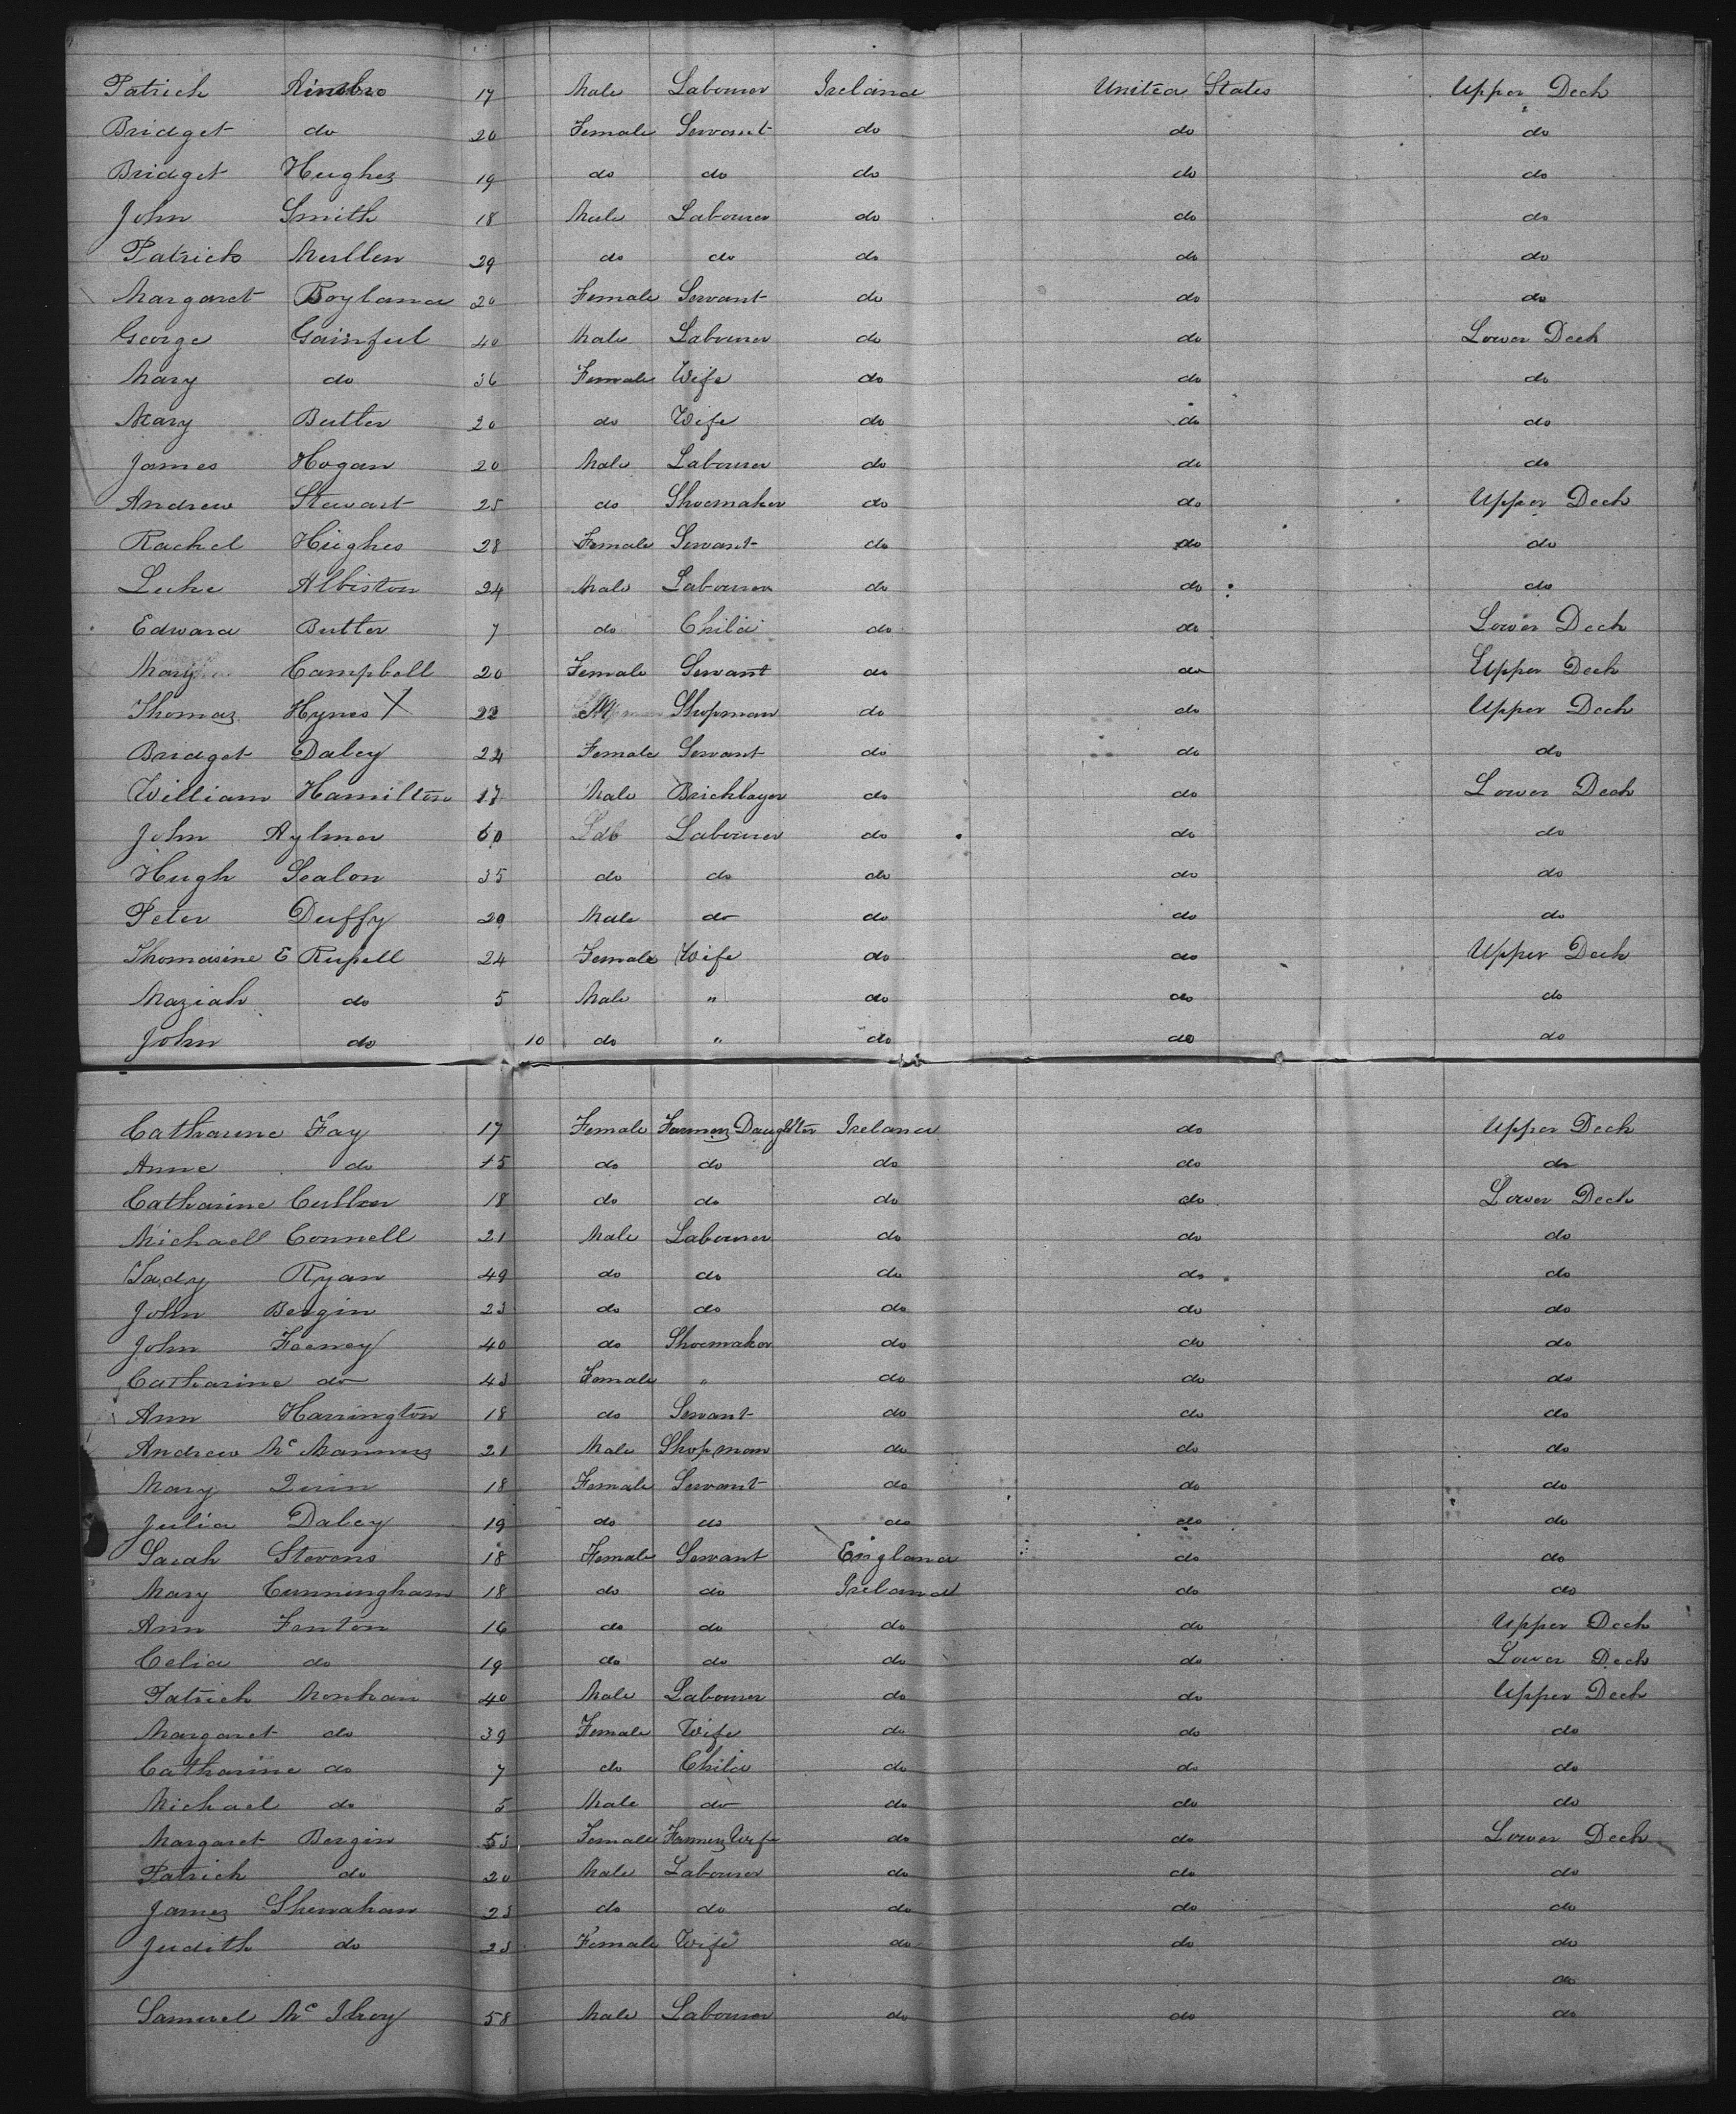 Patrick 17 Male Labourer Ireland United States Upper Deck
Bridget do 20 Female Servant do do do
Bridget Hughes 19 do do do do do
John Smith 18 Male Labourer do do do
Patrick Mullen 29 do do do do do
Margaret Boyland 20 Female Servant do do do
George Gainful 40 Male Labourer do do Lower Deck
Mary do 36 Female Wife do do do
Mary Butler 20 do Wife do do do
James Hogan 20 Male Labourer do do do
Andrew Stewart 25 do Shoemaker do do Upper Deck
Rachel Hughes 28 Female Servant do do do
Luke Albiston 24 Male Labourer do do do
Edward Butler 7 do Child do do Lower Deck
Mary Campbell 20 Female Servant do do Upper Deck
Thomas Hynes X 22 Shopman do do Upper Deck
Bridget Daley 22 Female Servant do do do
William Hamilton 17 Male Bricklayer do do Lower Deck
John Aylmer 60 Lab Labourer do do do
Hugh Scalon 35 do do do do do
Peter Duffy 29 Male do do do do
Thomasine E Russell 24 Female Wife do do Upper Deck
Maziah do 5 Male " do do do
John do 10 do " do do do
Catharine Fay 17 Female Farmers Daughter Ireland do Upper Deck
Anne do 15 do do do do do
Catharine Cullen 18 do do do do Lower Deck
Michaell Connell 21 Male Labourer do do do
Ryan 49 do do do do do
John Bergin 23 do do do do do
John Feeney 40 do Shoemaker do do do
Catharine do 43 Female " do do do
Ann Harrington 18 do Servant do do do
Andrew Mc Manners 21 Male Shopman do do do
Mary Quin 18 Female Servant do do do
Julia Daley 19 do do do do do
Sarah Stevens 18 Female Servant England do do
Mary Cunningham 18 do do Ireland do do
Ann Fenton 16 do do do do Upper Deck
Celia do 19 do do do do Lower Deck
Patrick Monhan 40 Male Labourer do do Upper Deck
Margaret do 39 Female Wife do do do
Catharine do 7 do Child do do do
Michael do 5 Male do do do do
Margaret Bergin 53 Female Farmers Wife do do Lower Deck
Patrick do 20 Male Labourer do do do
James Shenahan 23 do do do do do
Judith do 23 Female Wife do do do
do
Samuel Mc Ilroy 58 Male Labourer do do do